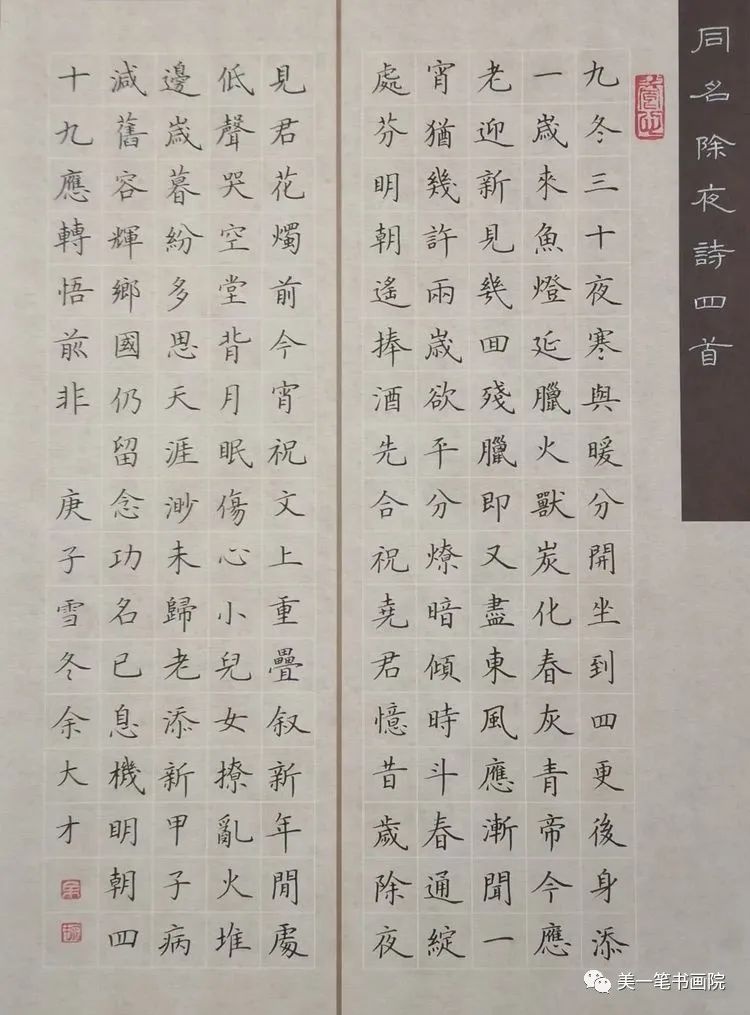 同名除夜詩四首
九冬三十夜寒與暖分開坐到四更後身添
一歲來魚燈延臘火獸炭化春灰青帝今應
老迎新見幾回殘臘即又盡東風應漸聞一
宵猶幾許兩歲欲平分燎暗傾時斗春通綻
處芬明朝遙捧酒先合祝堯君憶昔歲除夜
見君花燭前今宵祝文上重疊叙新年閒處
低聲哭空堂背月眠傷心小兒女撩亂火堆
邊歲暮紛多思天涯渺未歸老添新甲子病
減舊容輝鄉國仍留念功名已息機明朝四
十九應轉悟前非 庚子雪冬余大才
美一笔书画院